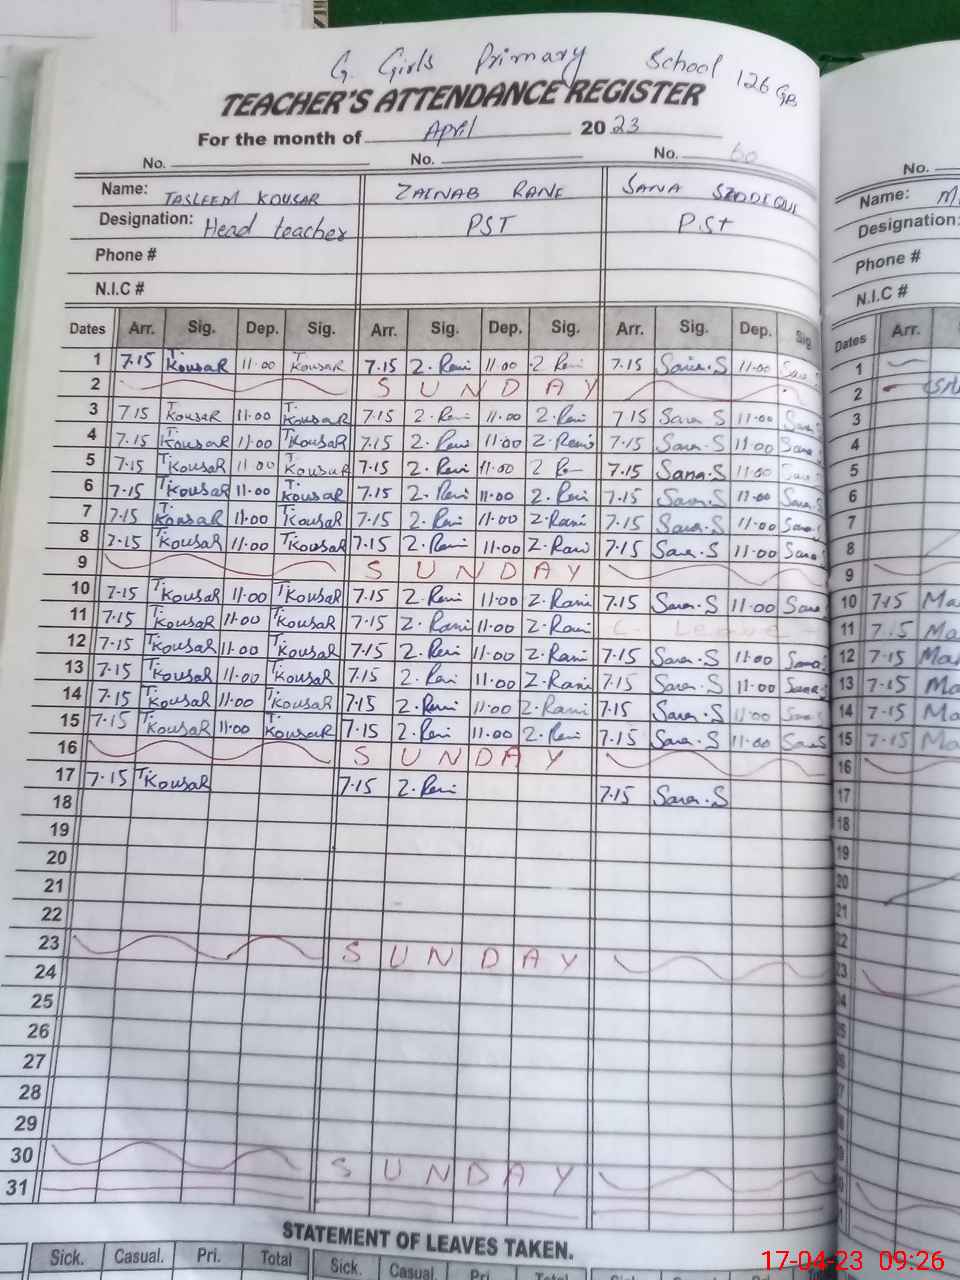 G. Girls Primary School 126 GB
TEACHER'S ATTENDANCE REGISTER
For the month of April 2023
No. No. No. 60 No.
Name: TASLEEM KOUSAR ZAINAB RANI SANA SIDDIQUI Name:
Designation: Head teacher PST P.St Designation:
Phone # Phone #
N.I.C # N.I.C #
Dates Arr. Sig. Dep. Sig. Arr. Sig. Dep. Sig. Arr. Sig. Dep. Sig Dates Arr.
1 7.15 T.KousaR 11.00 T.KousaR 7.15 Z.Rani 11.00 Z Rani 7.15 Sana.S 11.00 Sana 1
2 SUNDAY 2
3 7.15 T.KousaR 11.00 T.KousaR 7.15 Z.Rani 11.00 Z.Rani 7.15 Sana S 11.00 Sana 3
4 7.15 T.KousaR 11.00 T.KousaR 7.15 Z.Rani 11.00 Z.Rani 7.15 Sana S 11.00 Sana 4
5 7.15 T.KousaR 11.00 T.KousaR 7.15 Z.Rani 11.00 7.15 Sana.S 11.00 Sana 5
6 7.15 T.KousaR 11.00 T.KousaR 7.15 Z.Rani 11.00 Z.Rani 7.15 Sana.S 11.00 Sana.S 6
7 7.15 T.KousaR 11.00 T.KousaR 7.15 Z.Rani 11.00 Z.Rani 7.15 Sana.S 11.00 Sana.S 7
8 7.15 T.KousaR 11.00 T.KousaR 7.15 Z.Rani 11.00 Z.Rani 7.15 Sana.S 11.00 Sana 8
9 SUNDAY 9
10 7.15 T.KousaR 11.00 T.KousaR 7.15 Z.Rani 11.00 Z.Rani 7.15 Sana.S 11.00 Sana 10 7.15 Ma
11 7.15 T.KousaR 11.00 T.KousaR 7.15 Z.Rani 11.00 Z.Rani C. Leave 11 7.15 Ma
12 7.15 T.KousaR 11.00 T.KousaR 7.15 Z.Rani 11.00 Z.Rani 7.15 Sana.S 11.00 Sana. 12 7.15 Ma
13 7.15 T.KousaR 11.00 T.KousaR 7.15 Z.Rani 11.00 Z.Rani 7.15 Sana.S 11.00 Sana.S 13 7.15 Ma
14 7.15 T.KousaR 11.00 T.KousaR 7.15 Z.Rani 11.00 Z.Rani 7.15 Sana.S 11.00 Sana.S 14 7.15 Ma
15 7.15 T.KousaR 11.00 T.KousaR 7.15 Z.Rani 11.00 Z.Rani 7.15 Sana.S 11.00 SanaS 15 7.15 Ma
16 SUNDAY 16
17 7.15 T.KousaR 7.15 Z.Rani 7.15 Sana.S 17
18 18
19 19
20 20
21 21
22 22
23 SUNDAY 23
24
25
26
27
28
29
30 SUNDAY
31
STATEMENT OF LEAVES TAKEN.
Sick. Casual. Pri. Total Sick. Casual. Pri. Total
17-04-23 09:26